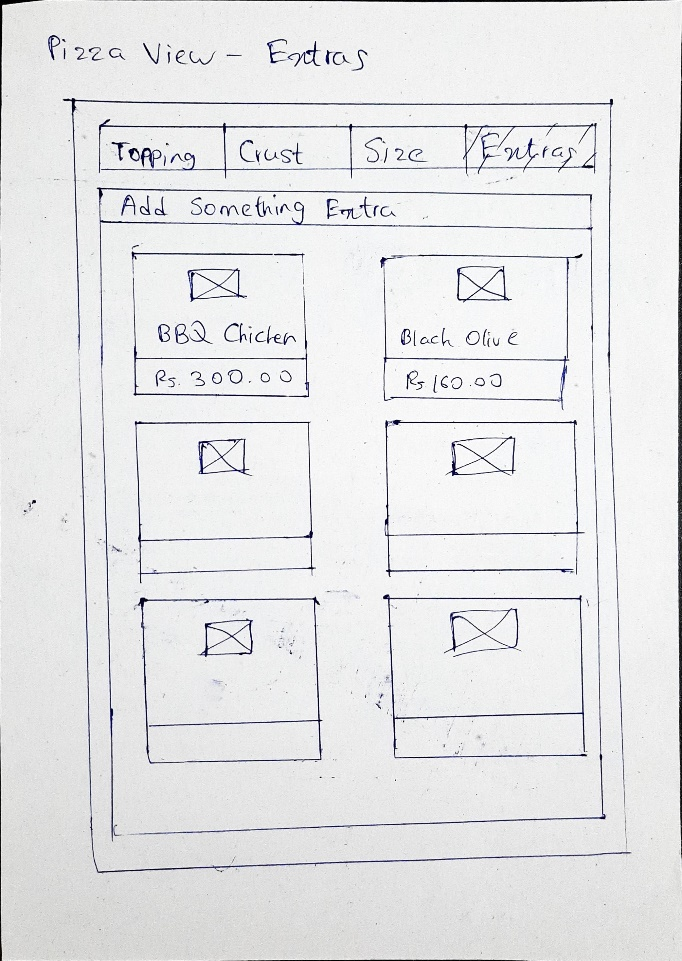 Pizza View - Extras
Topping Crust Size Extras
Add Something Extra
BBQ Chicken Black Olive
Rs. 300.00 Rs 160.00